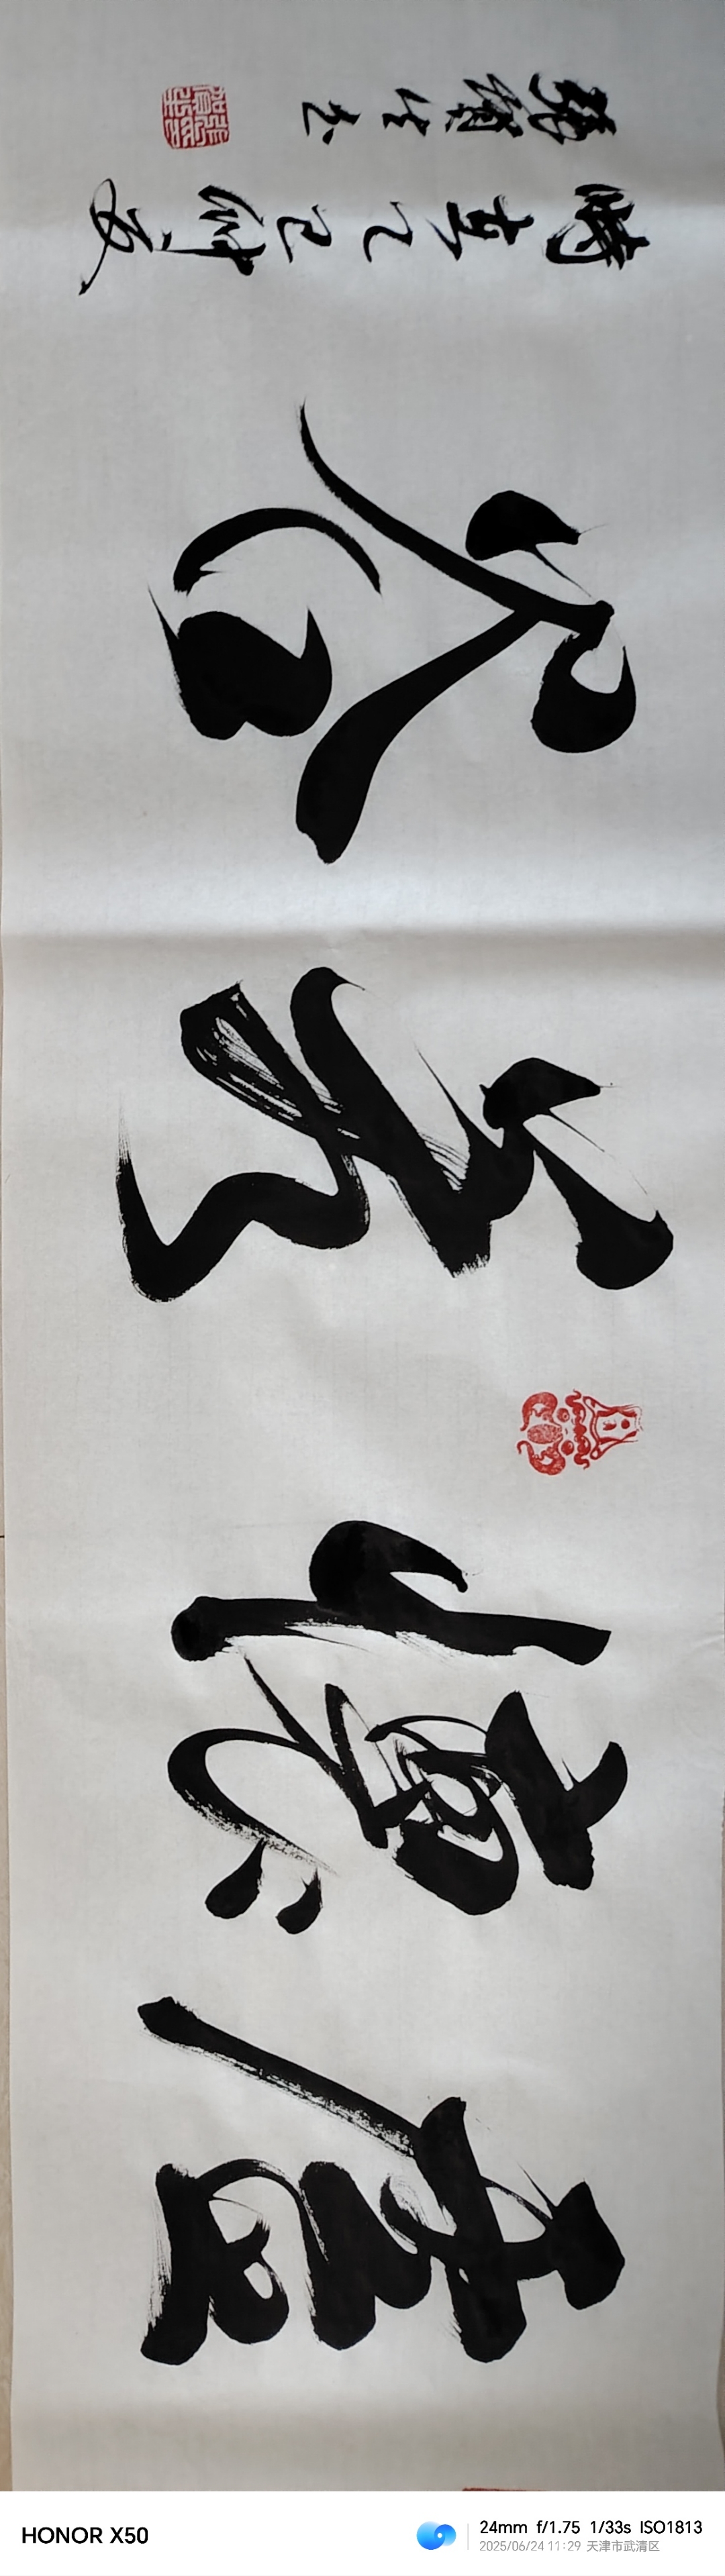 虚懷若谷
時在乙巳仲夏
HONOR X50
24mm f/1.75 1/33s ISO1813
2025/06/24 11:29 天津市武清区